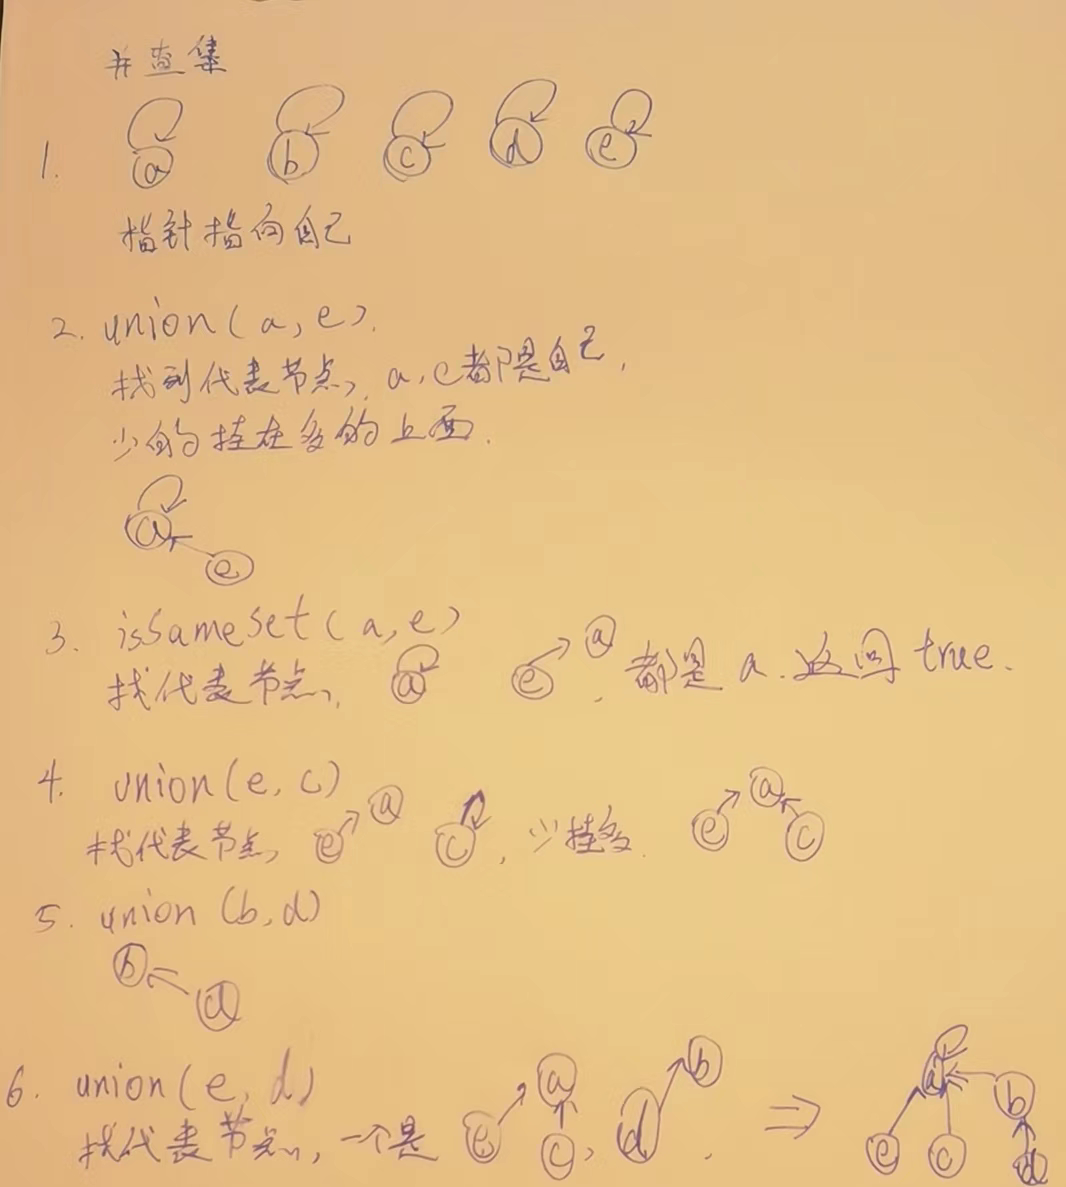 并查集
1. a b c d e
指针指向自己
2. union(a,e).
找到代表节点, a,e都是自己,
少的挂在多的上面.
a
e
3. isSameSet(a,e)
找代表节点, a e a, 都是a.返回true.
4. union(e,c)
找代表节点, e a c, 少挂多. e a c
5. union(b,d)
b
d
6. union(e,d)
找代表节点, 一个是 e a c, d b. ⇒ a e c b d